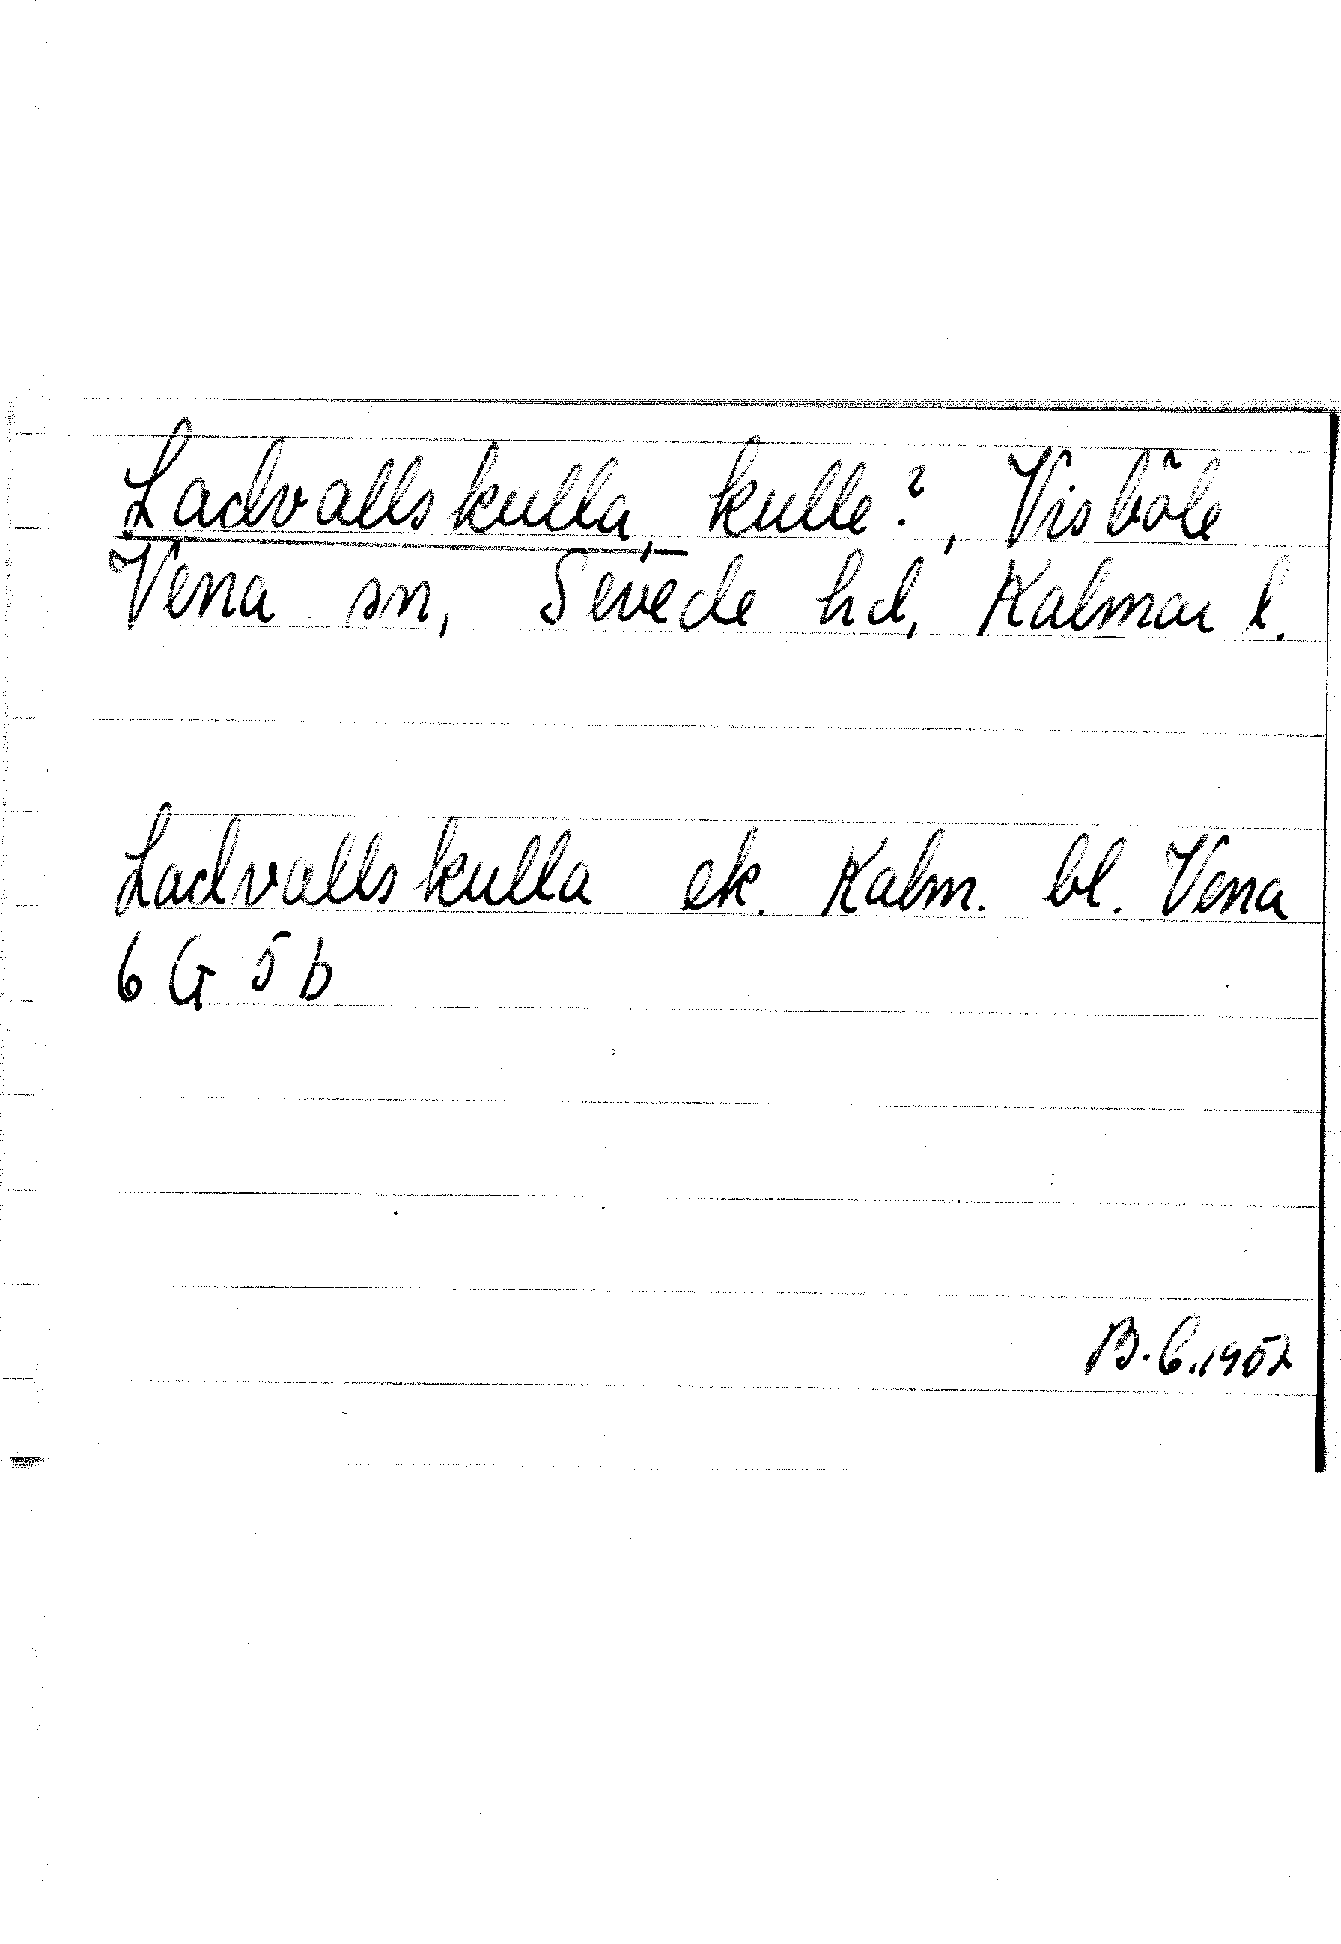 Ladvallskulla, kulle?, Visböle
Vena sn, Sevede hd, Kalmar l.
Ladvallskulla ek. Kalm. bl. Vena
6 G 5 b
B.C.1952